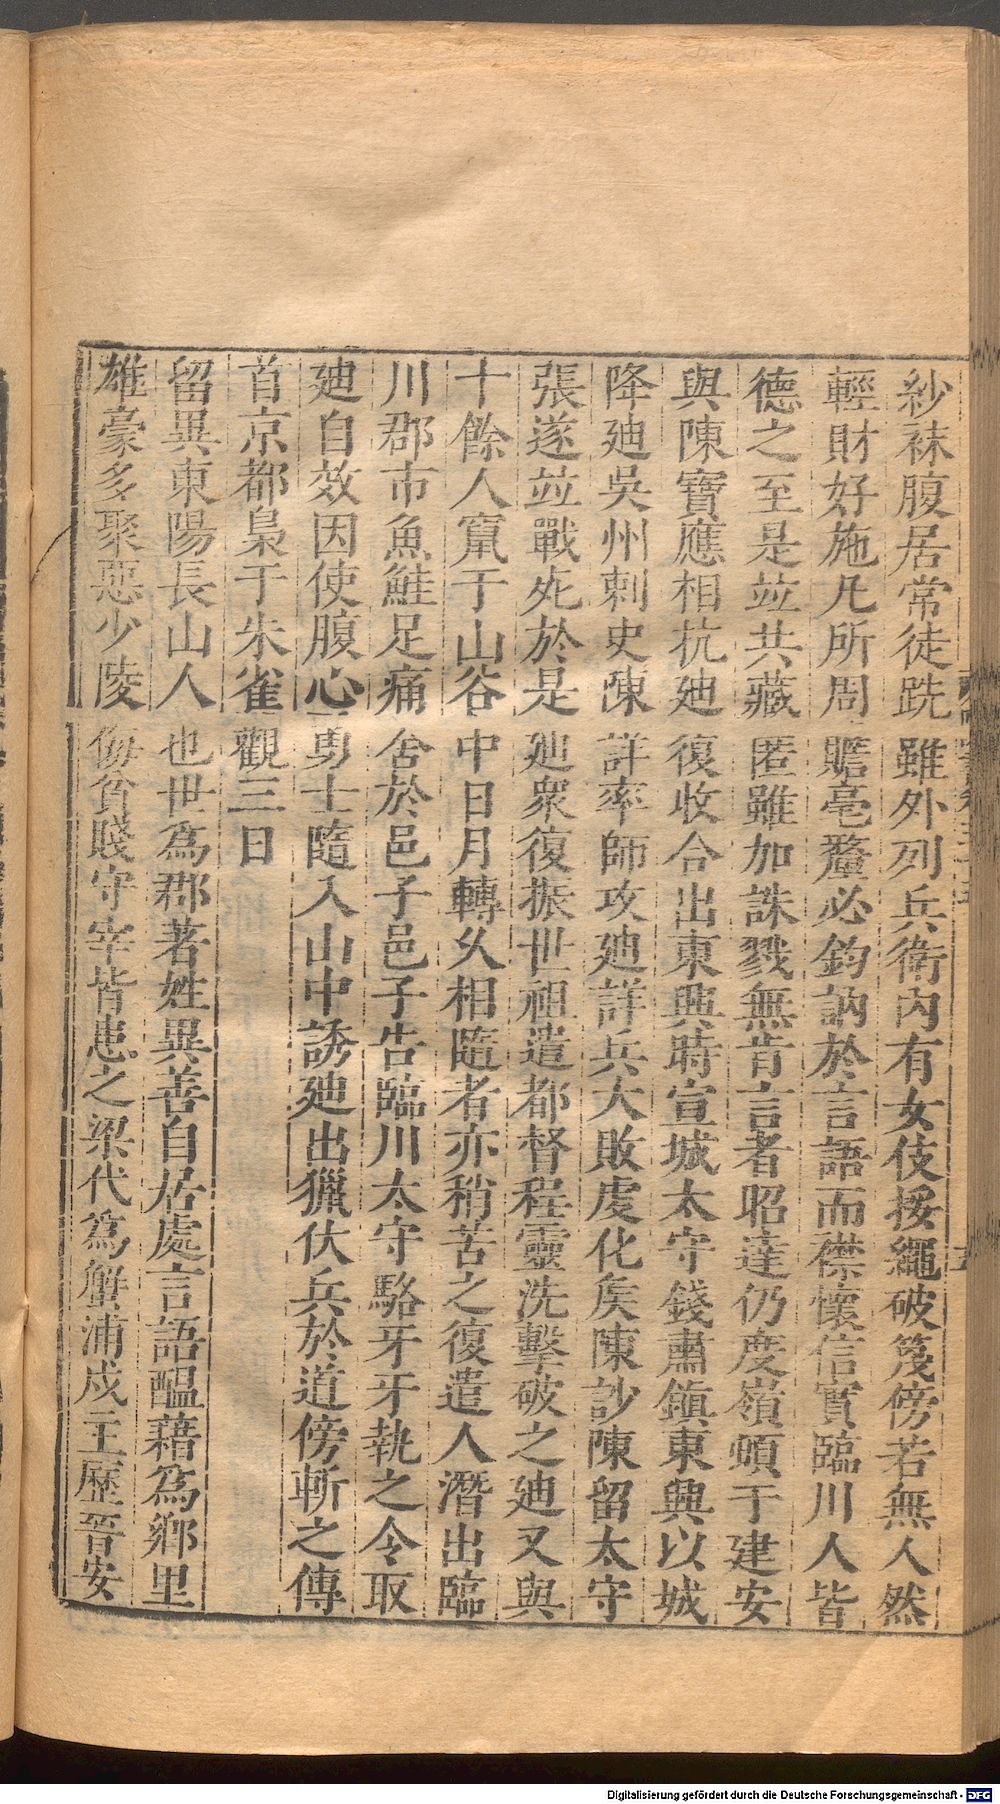 紗袜腹居常徒跣雖外列兵衛內有女伎挼繩破篾傍若無人然
輕財好施凡所周贍毫釐必鈞訥於言語而襟懷信實臨川人皆
德之至是竝共藏匿雖加誅戮無肯言者昭達仍度嶺頓于建安
與陳寶應相抗廸復收合出東興時宣城太守錢肅鎭東興以城
降廸吳州刺史陳詳率師攻廸詳兵大敗虔化矦陳訬陳留太守
張遂竝戰死於是廸衆復振世祖遣都督程靈洗擊破之廸又與
十餘人竄于山谷中日月轉乆相隨者亦稍苦之復遣人潛出臨
川郡市魚鮭足痛舍於邑子邑子告臨川太守駱牙牙執之令取
廸自效因使腹心勇士隨入山中誘廸出獵伏兵於道傍斬之傳
首京都梟于朱雀觀三日
留異東陽長山人也世爲郡著姓異善自居處言語醞藉爲鄕里
雄豪多聚惡少陵侮貧賤守宰皆患之梁代爲蟹浦戍主歷晉安
Digitalisierung gefördert durch die Deutsche Forschungsgemeinschaft - DFG